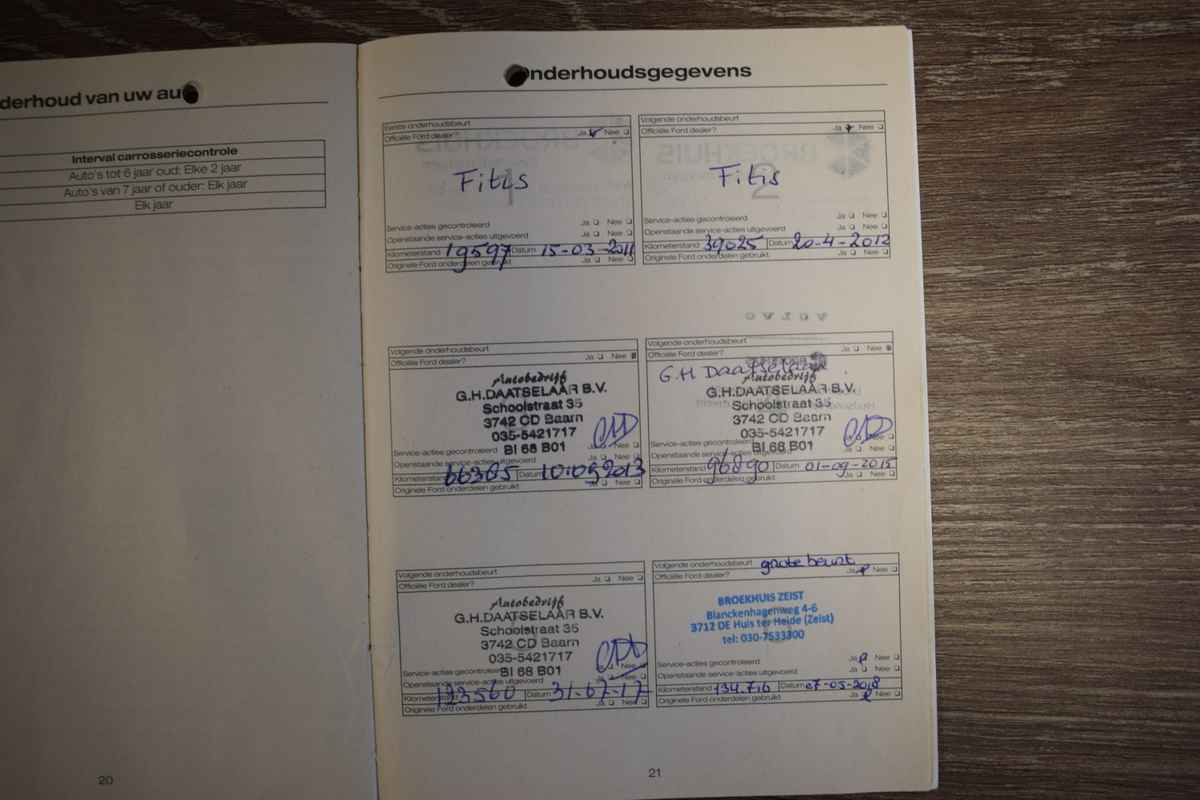 derhoud van uw au
Interval carrosseriecontrole
Auto's tot 6 jaar oud: Elke 2 jaar
Auto's van 7 jaar of ouder: Elk jaar
Elk jaar
20
Onderhoudsgegevens
Eerste onderhoudsbeurt
Officiële Ford dealer? Ja Nee
Fitis
Service-acties gecontroleerd Ja Nee
Openstaande service-acties uitgevoerd Ja Nee
Kilometerstand 19597 Datum 15-03-2011
Originele Ford onderdelen gebruikt Ja Nee
Volgende onderhoudsbeurt
Officiële Ford dealer? Ja Nee
Fitis
Service-acties gecontroleerd Ja Nee
Openstaande service-acties uitgevoerd Ja Nee
Kilometerstand 39025 Datum 20-4-2012
Originele Ford onderdelen gebruikt Ja Nee
Volgende onderhoudsbeurt
Officiële Ford dealer? Ja Nee
Autobedrijf
G.H.DAATSELAAR B.V.
Schoolstraat 35
3742 CD Baarn
035-5421717
BI 68 B01
Service-acties gecontroleerd Ja Nee
Openstaande service-acties uitgevoerd Ja Nee
Kilometerstand 66365 Datum 10-09-2013
Originele Ford onderdelen gebruikt Ja Nee
Volgende onderhoudsbeurt
Officiële Ford dealer? Ja Nee
G.H Daatselaar
Autobedrijf
G.H.DAATSELAAR B.V.
Schoolstraat 35
3742 CD Baarn
035-5421717
BI 68 B01
Service-acties gecontroleerd Ja Nee
Openstaande service-acties uitgevoerd Ja Nee
Kilometerstand 96890 Datum 01-09-2015
Originele Ford onderdelen gebruikt Ja Nee
Volgende onderhoudsbeurt
Officiële Ford dealer? Ja Nee
Autobedrijf
G.H.DAATSELAAR B.V.
Schoolstraat 35
3742 CD Baarn
035-5421717
BI 68 B01
Service-acties gecontroleerd Ja Nee
Openstaande service-acties uitgevoerd Ja Nee
Kilometerstand 123560 Datum 31-07-17
Originele Ford onderdelen gebruikt Ja Nee
Volgende onderhoudsbeurt grote beurt
Officiële Ford dealer? Ja Nee
BROEKHUIS ZEIST
Blanckenhagenweg 4-6
3712 DE Huis ter Heide (Zeist)
tel: 030-7533300
Service-acties gecontroleerd Ja Nee
Openstaande service-acties uitgevoerd Ja Nee
Kilometerstand 134.716 Datum 07-05-2018
Originele Ford onderdelen gebruikt Ja Nee
21